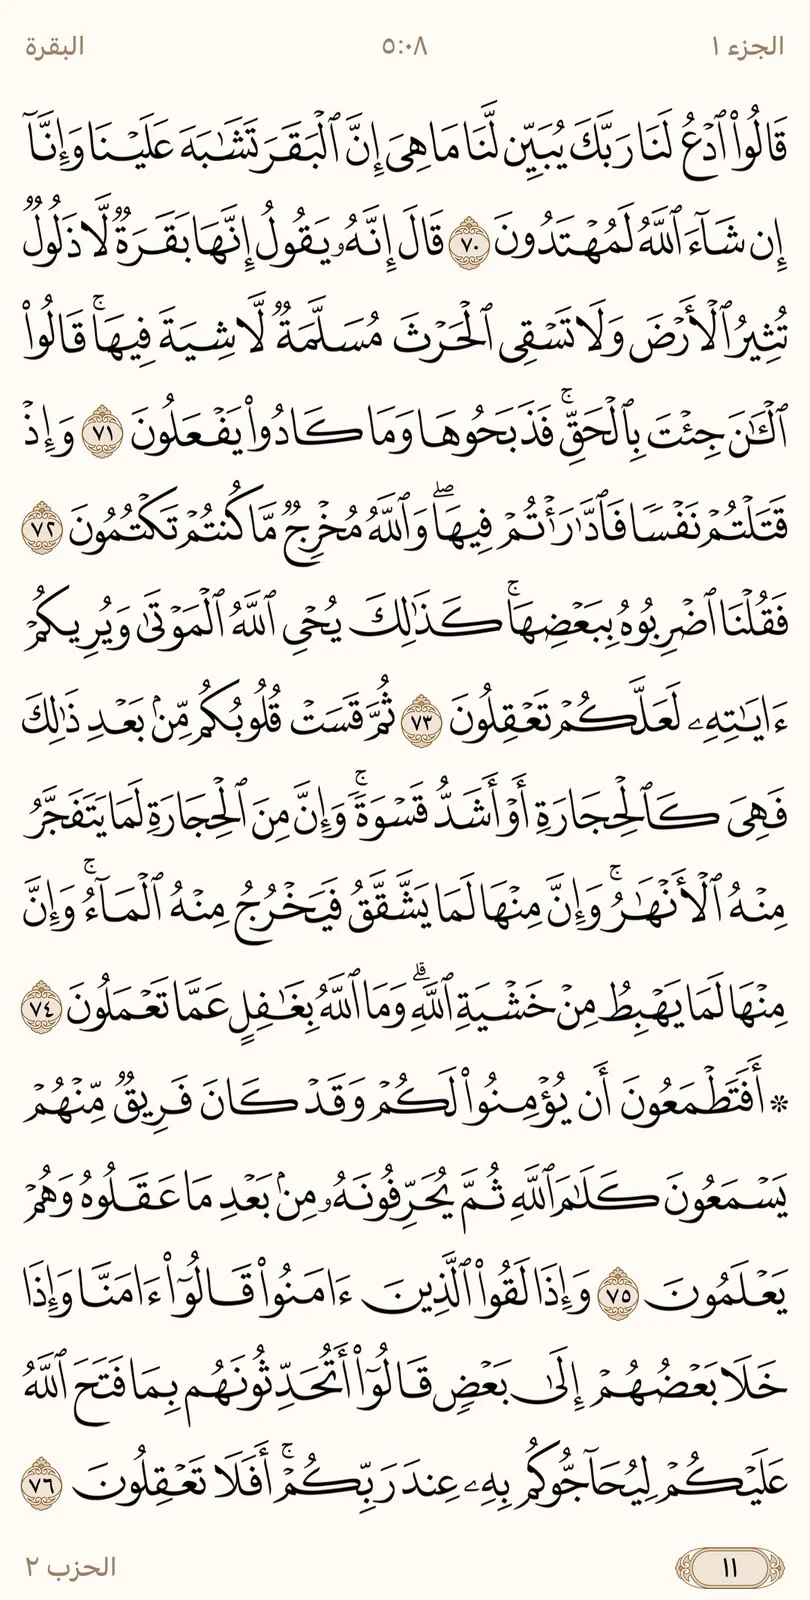 الجزء ١ ٥:٠٨ البقرة
قَالُوا۟ ٱدْعُ لَنَا رَبَّكَ يُبَيِّن لَّنَا مَا هِىَ إِنَّ ٱلْبَقَرَ تَشَـٰبَهَ عَلَيْنَا وَإِنَّآ
إِن شَآءَ ٱللَّهُ لَمُهْتَدُونَ ٧٠ قَالَ إِنَّهُۥ يَقُولُ إِنَّهَا بَقَرَةٌ لَّا ذَلُولٌ
تُثِيرُ ٱلْأَرْضَ وَلَا تَسْقِى ٱلْحَرْثَ مُسَلَّمَةٌ لَّا شِيَةَ فِيهَا ۚ قَالُوا۟
ٱلْـَٔـٰنَ جِئْتَ بِٱلْحَقِّ ۚ فَذَبَحُوهَا وَمَا كَادُوا۟ يَفْعَلُونَ ٧١ وَإِذْ
قَتَلْتُمْ نَفْسًا فَٱدَّٰرَْٰٔتُمْ فِيهَا ۖ وَٱللَّهُ مُخْرِجٌ مَّا كُنتُمْ تَكْتُمُونَ ٧٢
فَقُلْنَا ٱضْرِبُوهُ بِبَعْضِهَا ۚ كَذَٰلِكَ يُحْىِ ٱللَّهُ ٱلْمَوْتَىٰ وَيُرِيكُمْ
ءَايَـٰتِهِۦ لَعَلَّكُمْ تَعْقِلُونَ ٧٣ ثُمَّ قَسَتْ قُلُوبُكُم مِّنۢ بَعْدِ ذَٰلِكَ
فَهِىَ كَٱلْحِجَارَةِ أَوْ أَشَدُّ قَسْوَةً ۚ وَإِنَّ مِنَ ٱلْحِجَارَةِ لَمَا يَتَفَجَّرُ
مِنْهُ ٱلْأَنْهَـٰرُ ۚ وَإِنَّ مِنْهَا لَمَا يَشَّقَّقُ فَيَخْرُجُ مِنْهُ ٱلْمَآءُ ۚ وَإِنَّ
مِنْهَا لَمَا يَهْبِطُ مِنْ خَشْيَةِ ٱللَّهِ ۗ وَمَا ٱللَّهُ بِغَـٰفِلٍ عَمَّا تَعْمَلُونَ ٧٤
۞ أَفَتَطْمَعُونَ أَن يُؤْمِنُوا۟ لَكُمْ وَقَدْ كَانَ فَرِيقٌ مِّنْهُمْ
يَسْمَعُونَ كَلَـٰمَ ٱللَّهِ ثُمَّ يُحَرِّفُونَهُۥ مِنۢ بَعْدِ مَا عَقَلُوهُ وَهُمْ
يَعْلَمُونَ ٧٥ وَإِذَا لَقُوا۟ ٱلَّذِينَ ءَامَنُوا۟ قَالُوٓا۟ ءَامَنَّا وَإِذَا
خَلَا بَعْضُهُمْ إِلَىٰ بَعْضٍ قَالُوٓا۟ أَتُحَدِّثُونَهُم بِمَا فَتَحَ ٱللَّهُ
عَلَيْكُمْ لِيُحَآجُّوكُم بِهِۦ عِندَ رَبِّكُمْ ۚ أَفَلَا تَعْقِلُونَ ٧٦
١١ الحزب ٢